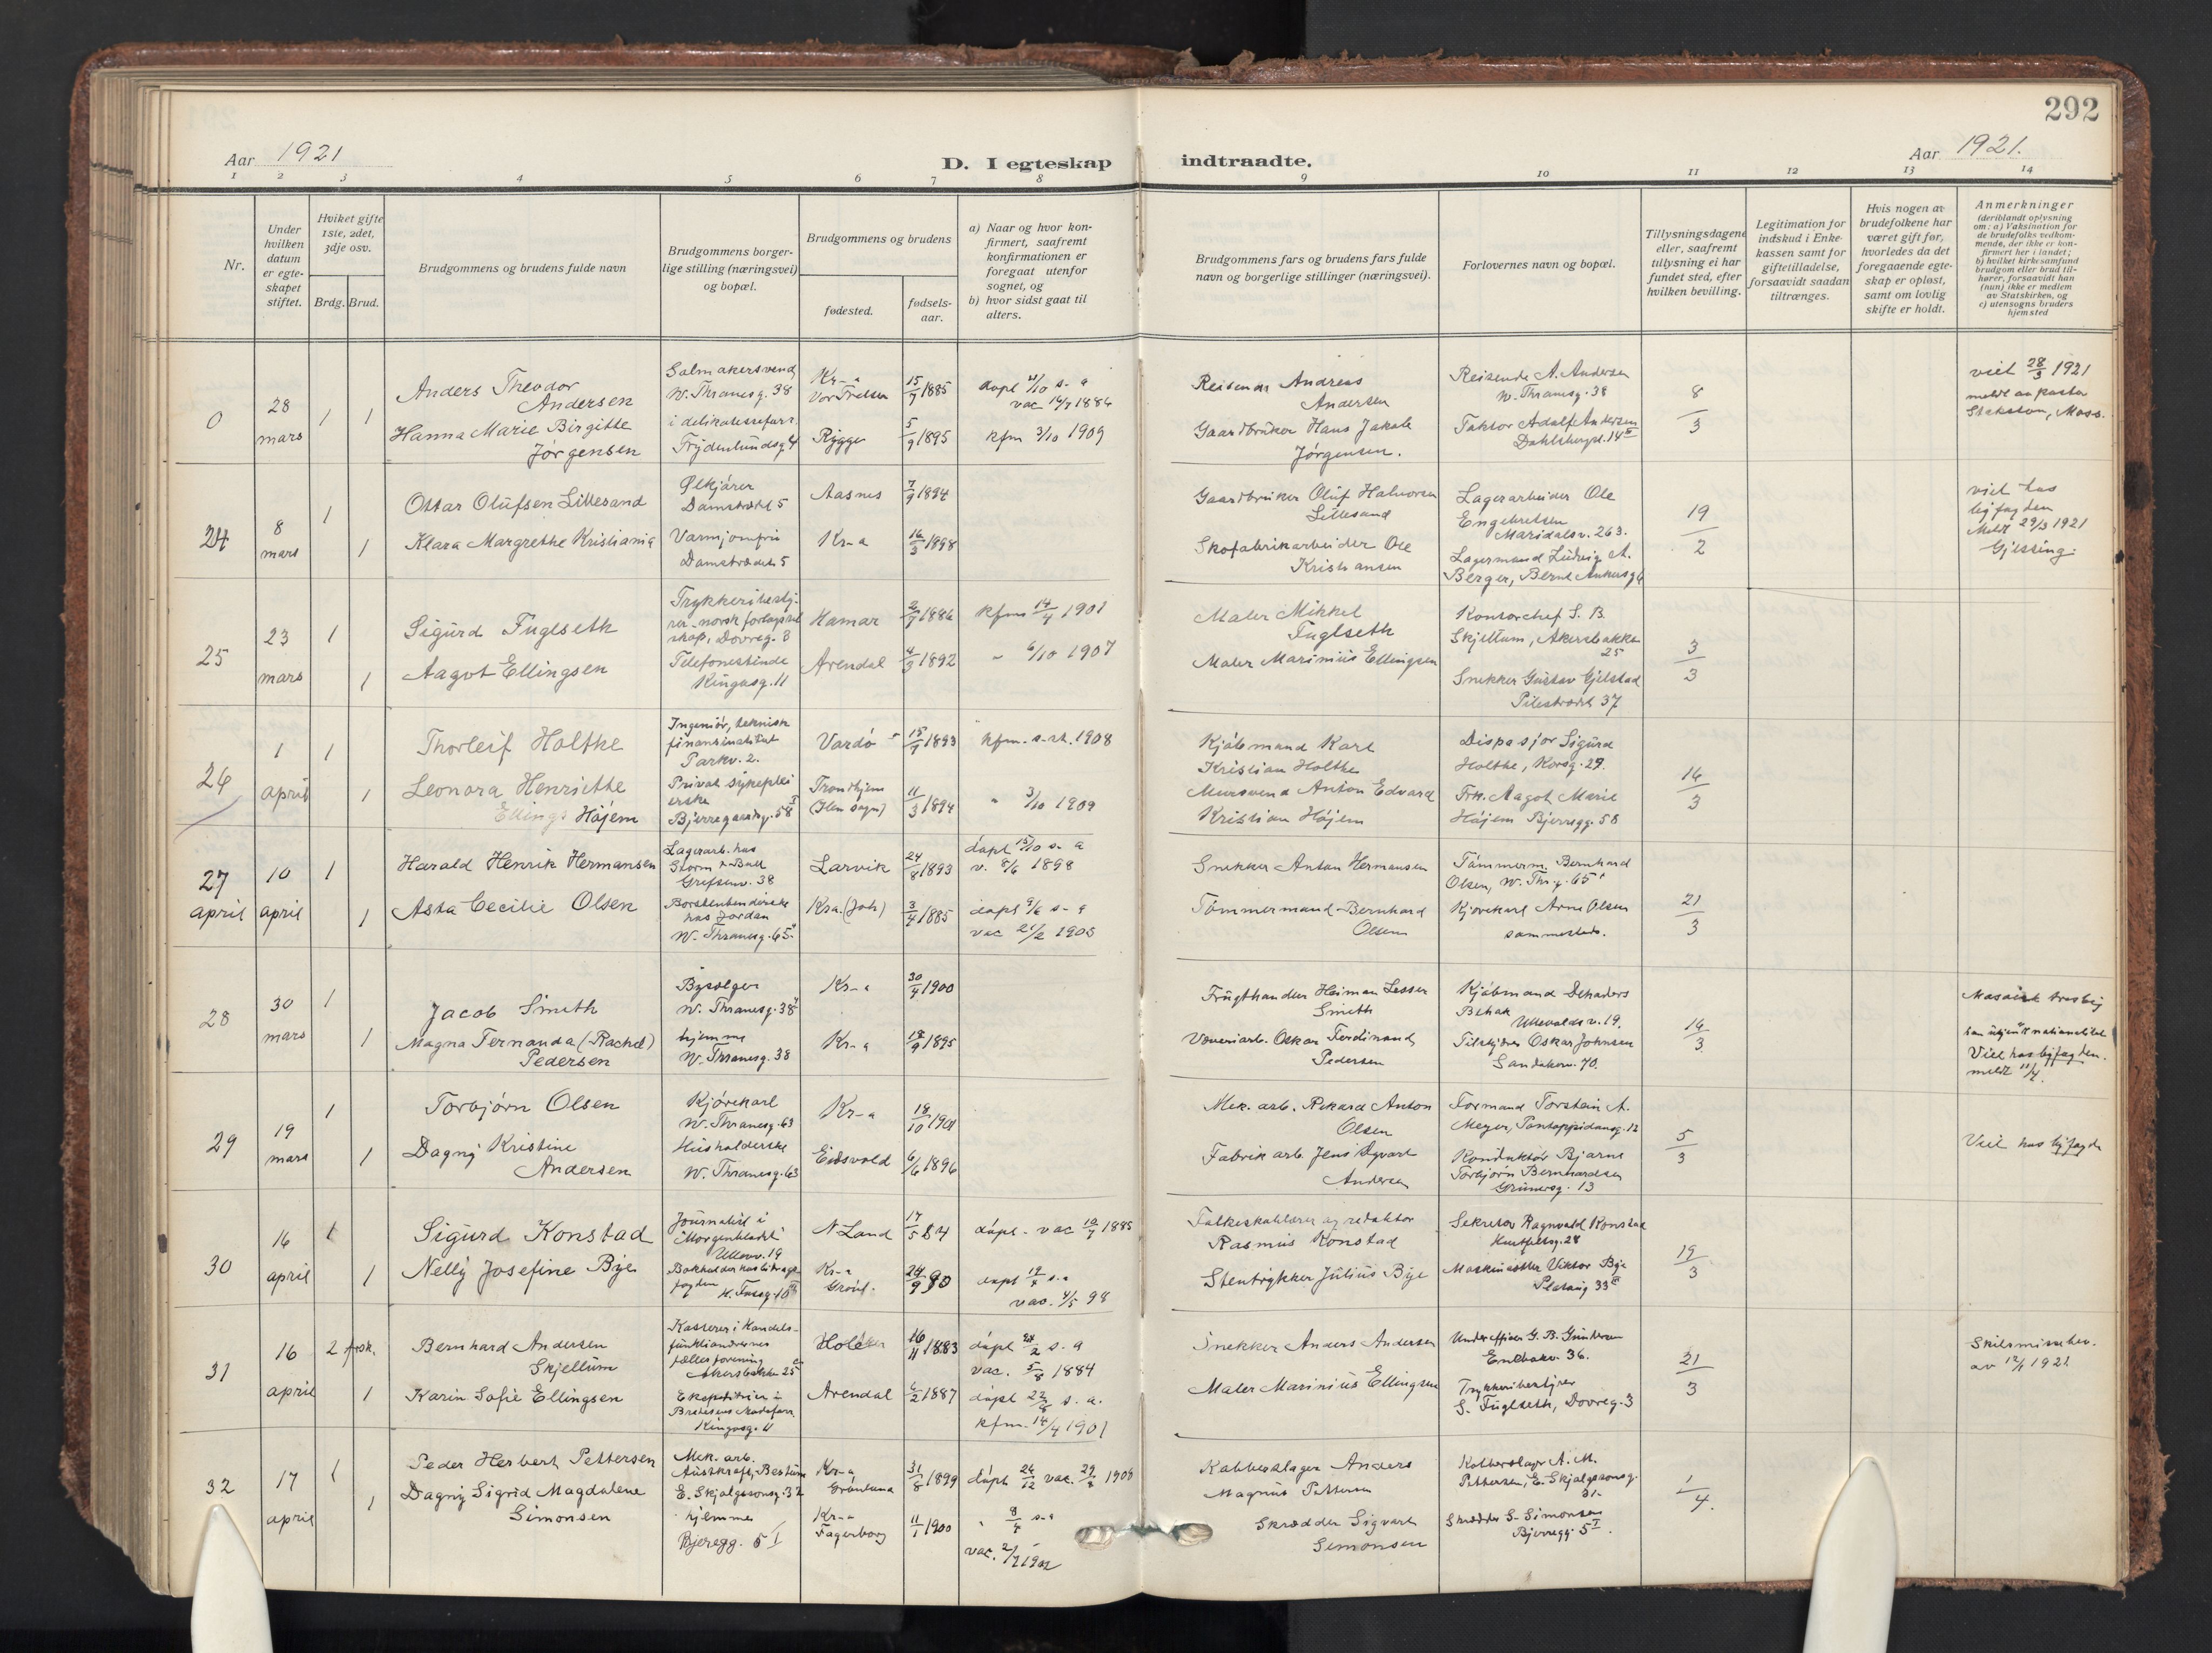 292
Aar 1921
D. I egteskap indtraadte.
Aar 1921.
1 2 3 4 5 6 7 8 9 10 11 12 13 14
Nr.
Under hvilken datum er egteskapet stiftet.
Hvilket gifte 1ste, 2det, 3dje osv.
Brdg. Brud.
Brudgommens og brudens fulde navn
Brudgommens borgerlige stilling (næringsvei) og bopæl.
Brudgommens og brudens
fødested.
fødselsaar.
a) Naar og hvor konfirmert, saafremt konfirmationen er foregaat utenfor sognet, og
b) hvor sidst gaat til alters.
Brudgommens fars og brudens fars fulde navn og borgerlige stillinger (næringsvei).
Forlovernes navn og bopæl.
Tillysningsdagene eller, saafremt tillysning ei har fundet sted, efter hvilken bevilling.
Legitimation for indskud i Enkekassen samt for giftetilladelse, forsaavidt saadan tiltrænges.
Hvis nogen av brudefolkene har været gift før, hvorledes da det foregaaende egteskap er opløst, samt om lovlig skifte er holdt.
Anmerkninger (deriblandt oplysning om: a) Vaksination for de brudefolks vedkommende, der ikke er konfirmert her i landet; b) hvilket kirkesamfund brudgom eller brud tilhører, forsaavidt han (hun) ikke er medlem av Statskirken, og c) utensogns bruders hjemsted
0
28 mars
1 1
Anders Theodor
Andersen
Salmakersvend
W. Thranesg. 38
Kr-a
Vor Frelser
15/9 1885
døpt s. a
vac 1886
Reisende Andreas
Andersen
Reisende A. Andersen
W. Thranesg. 38
8/3
viet 28/3 1921
Hanna Marie Birgitte
Jørgensen
i delikatesseforr.
Frydenlundsg. 4
Rygge
5/9 1895
kfm 3/10 1909
Gaardbruker Hans Jakob
Jørgensen.
Faktor Adolf Andersen
24
8 mars
1
Ottar Olufsen Lillesand
Ølkjører
Damstrædet 5
Aasnes
7/9 1894
Gaardbruker Oluf Halvorsen
Lillesand
Lagerarbeider Ole
Engebretsen
Maridalsv. 263.
19/2
viet hos
byfogden
Meldt 29/3 1921
Gjessing
1
Klara Margrethe Kristiania
Varmjomfru
Damstrædet 5
Kr-a
16/3 1898
Skofabrikarbeider Ole
Kristiansen
Lagermand Ludvig A.
Berger, Bernt Ankersg 6
25
23 mars
1
Sigurd Fuglseth
Hamar
2/7 1886
kfm 14/4 1901
Maler Mikkel
Fuglseth
Kontorchef S. B.
Skjellum, Akersbakken
25
3/3
1
Aagot Ellingsen
Telefonistinde
Kingosg. 11
Arendal
4/9 1892
" 6/10 1907
Maler Marinius Ellingsen
Snekker Gustav Gjelstad
Pilestrædet 37
26
1 april
1
Thorleif Holtke
Ingeniør, teknisk
Parkv. 2.
Vardø
15/9 1893
kfm. s. st. 1908
Kjøbmand Karl
Kristian Holthe
Disponent Sigurd
Holthe, Korsg. 29.
16/3
1
Leonora Henriette
Ellings Højem
Privat sykepleierske
Bjerregaardsg. 58 I
Trondhjem
(Ilen sogn)
11/3 1894
" 3/10 1909
Mursvend Anton Edvard
Kristian Højem
Frk. Aagot Marie
Højem Bjerregg. 58
27 april
10 april
1
Harald Henrik Hermansen
Lagerarb. hos
Storm & Bull
Grefsenv. 38
Larvik
24/8 1893
døpt 15/10 s. a
v. 8/6 1898
Snekker Anton Hermansen
Tømmerm. Bernhard
Olsen, W. Thr.g. 65
21/3
1
Asta Cecilie Olsen
Børstenbinderske
hos Jordan
W. Thranesg. 65
Kr.a. (Joh)
3/4 1885
døpt s. a
vac 21/2 1905
Tømmermand Bernhard
Olsen
Kjørekarl Arne Olsen
sammesteds.
28
30 mars
1
Jacob Smith
Bysælger
W. Thranesg. 38
Kr-a
30/4 1900
Frugthandler Heiman Lesser
Smith
Kjøbmand
Ullevaalsv. 19.
16/3
Mosaisk trosbek.
1
Magna Fernanda (Rachel)
Pedersen
hjemme
W. Thranesg. 38
Kr-a
18/9 1895
Væveriarb. Oskar Ferdinand
Pedersen
Oskar Johnsen
Sandakerv. 70.
Viet hos byfogden.
meldt 11/4.
29
19 mars
1
Torbjørn Olsen
Kjørekarl
W. Thranesg. 63
Kr-a
18/10 1901
Mek. arb. Rikard Anton
Olsen
Formand Torstein A.
Meyer, Pontoppidansg. 12
5/3
Viet hos byfogden
1
Dagny Kristine
Andersen
Husholderske
W. Thranesg. 63
Eidsvold
6/6 1896
Fabrikarb Jens Sigvart
Andersen
Konduktør Bjarne
Torbjørn Bernhardsen
Grünersg. 13
30
16 april
1
Sigurd Konstad
Journalist i
Morgenbladet
Ullevv. 19
N. Land
17/5 84
døpt - vac 1885
Folkeskolelærer og redaktør
Rasmus Konstad
Sekretær Ragnvald Konstad
19/3
1
Nelly Josefine Bye
Kr-a
Grønl.
24/9 90
døpt s. a
vac. 4/5 98
Stentrykker Julius Bye
Viktor Bye
31
16 april
2 frsk.
Bernhard Andersen
Skjellum
Kasserer i Handels-
funktionærernes
fælles forening
Akersbakken 25
Holeker
16/11 1883
døpt s. a
vac. 5/8 1884
Snekker Anders Andersen
Underofficer G. B. Gundersen
Enebakv. 36.
21/3
Skilsmissebev.
av 1921
1
Karin Sofie Ellingsen
Kingosg. 11
Arendal
1887
døpt s. a.
kfm. 14/4 1901
Maler Marinius Ellingsen
Trykkeribestyrer
S. Fuglseth, Dovreg. 3
32
17 april
1
Peder Herbert Pettersen
Mek. arb.
E. Skjalgssonsg. 32
Kr-a
Grønland
31/8 1899
døpt 26/12 vac. 1900
Kobberslager Anders
Magnus Pettersen
Kobberslager A. M.
Pettersen, E. Skjalgssonsg.
1/4.
1
Dagny Sigrid Magdalene
Simonsen
hjemme
Bjeregg. 5 I
Kr-a
Fagerborg
11/1 1900
s. a
vac. 1902
Skrædder Sigvart
Simonsen
Skrædder S. Simonsen
Bjerregg. 5 I.